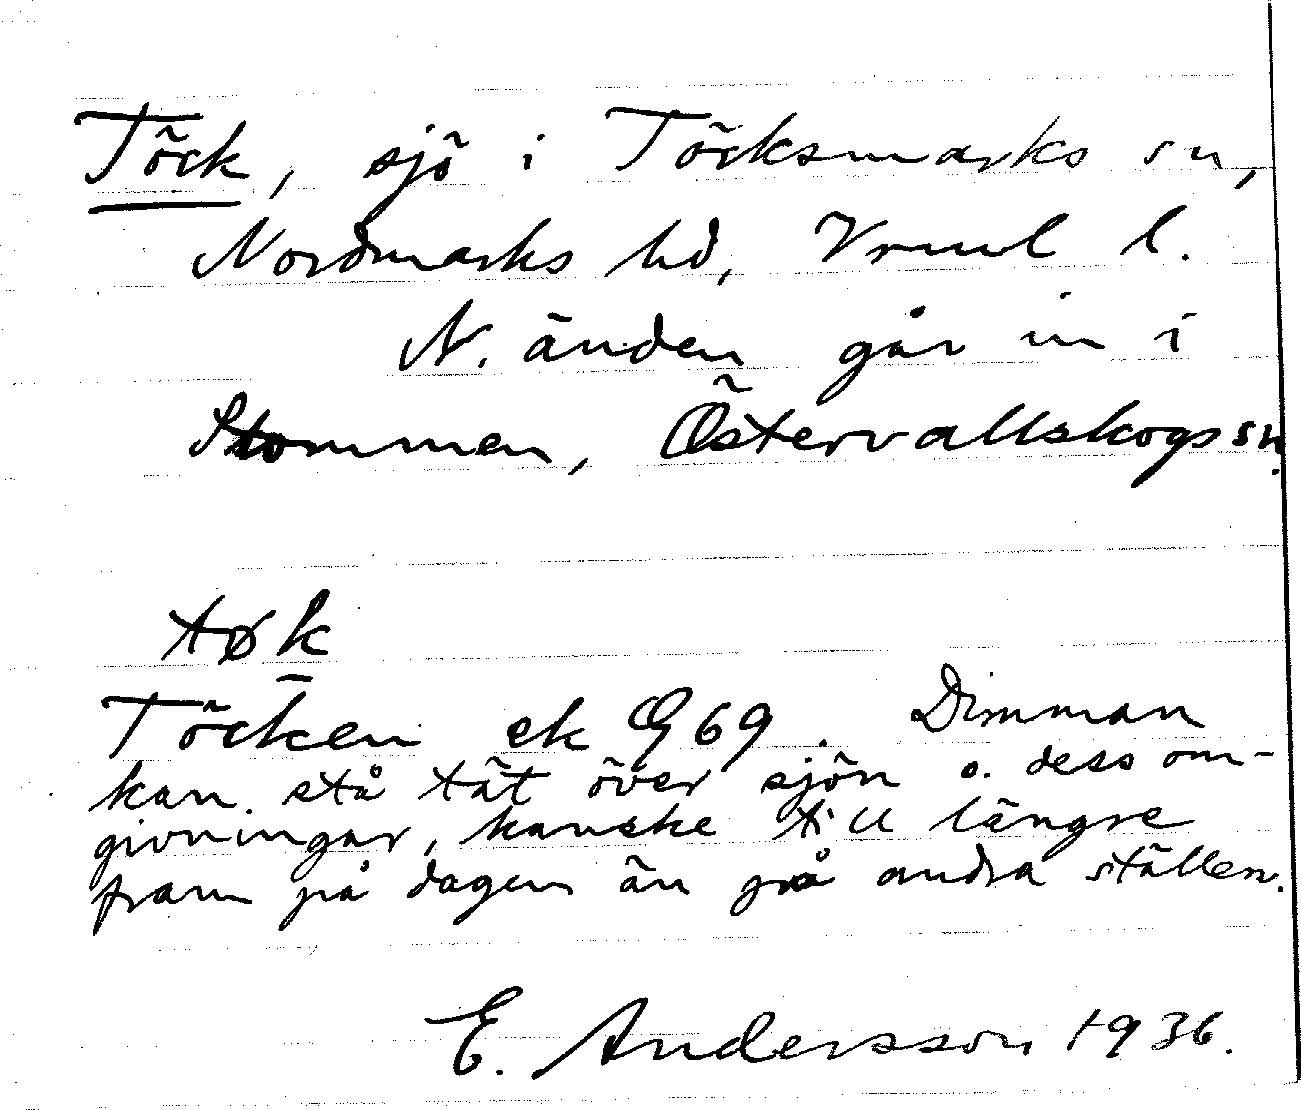 Töck, sjö i Töcksmarks sn,
Nordmarks hd, Vrml l.
N. änden går in i
Stommen, Östervallskogs sn.
tøk
Töcken ek G 69. Dimman
kan stå tät över sjön o. dess om-
givningar, kanske till längre
fram på dagen än på andra ställen.
E. Andersson 1936.